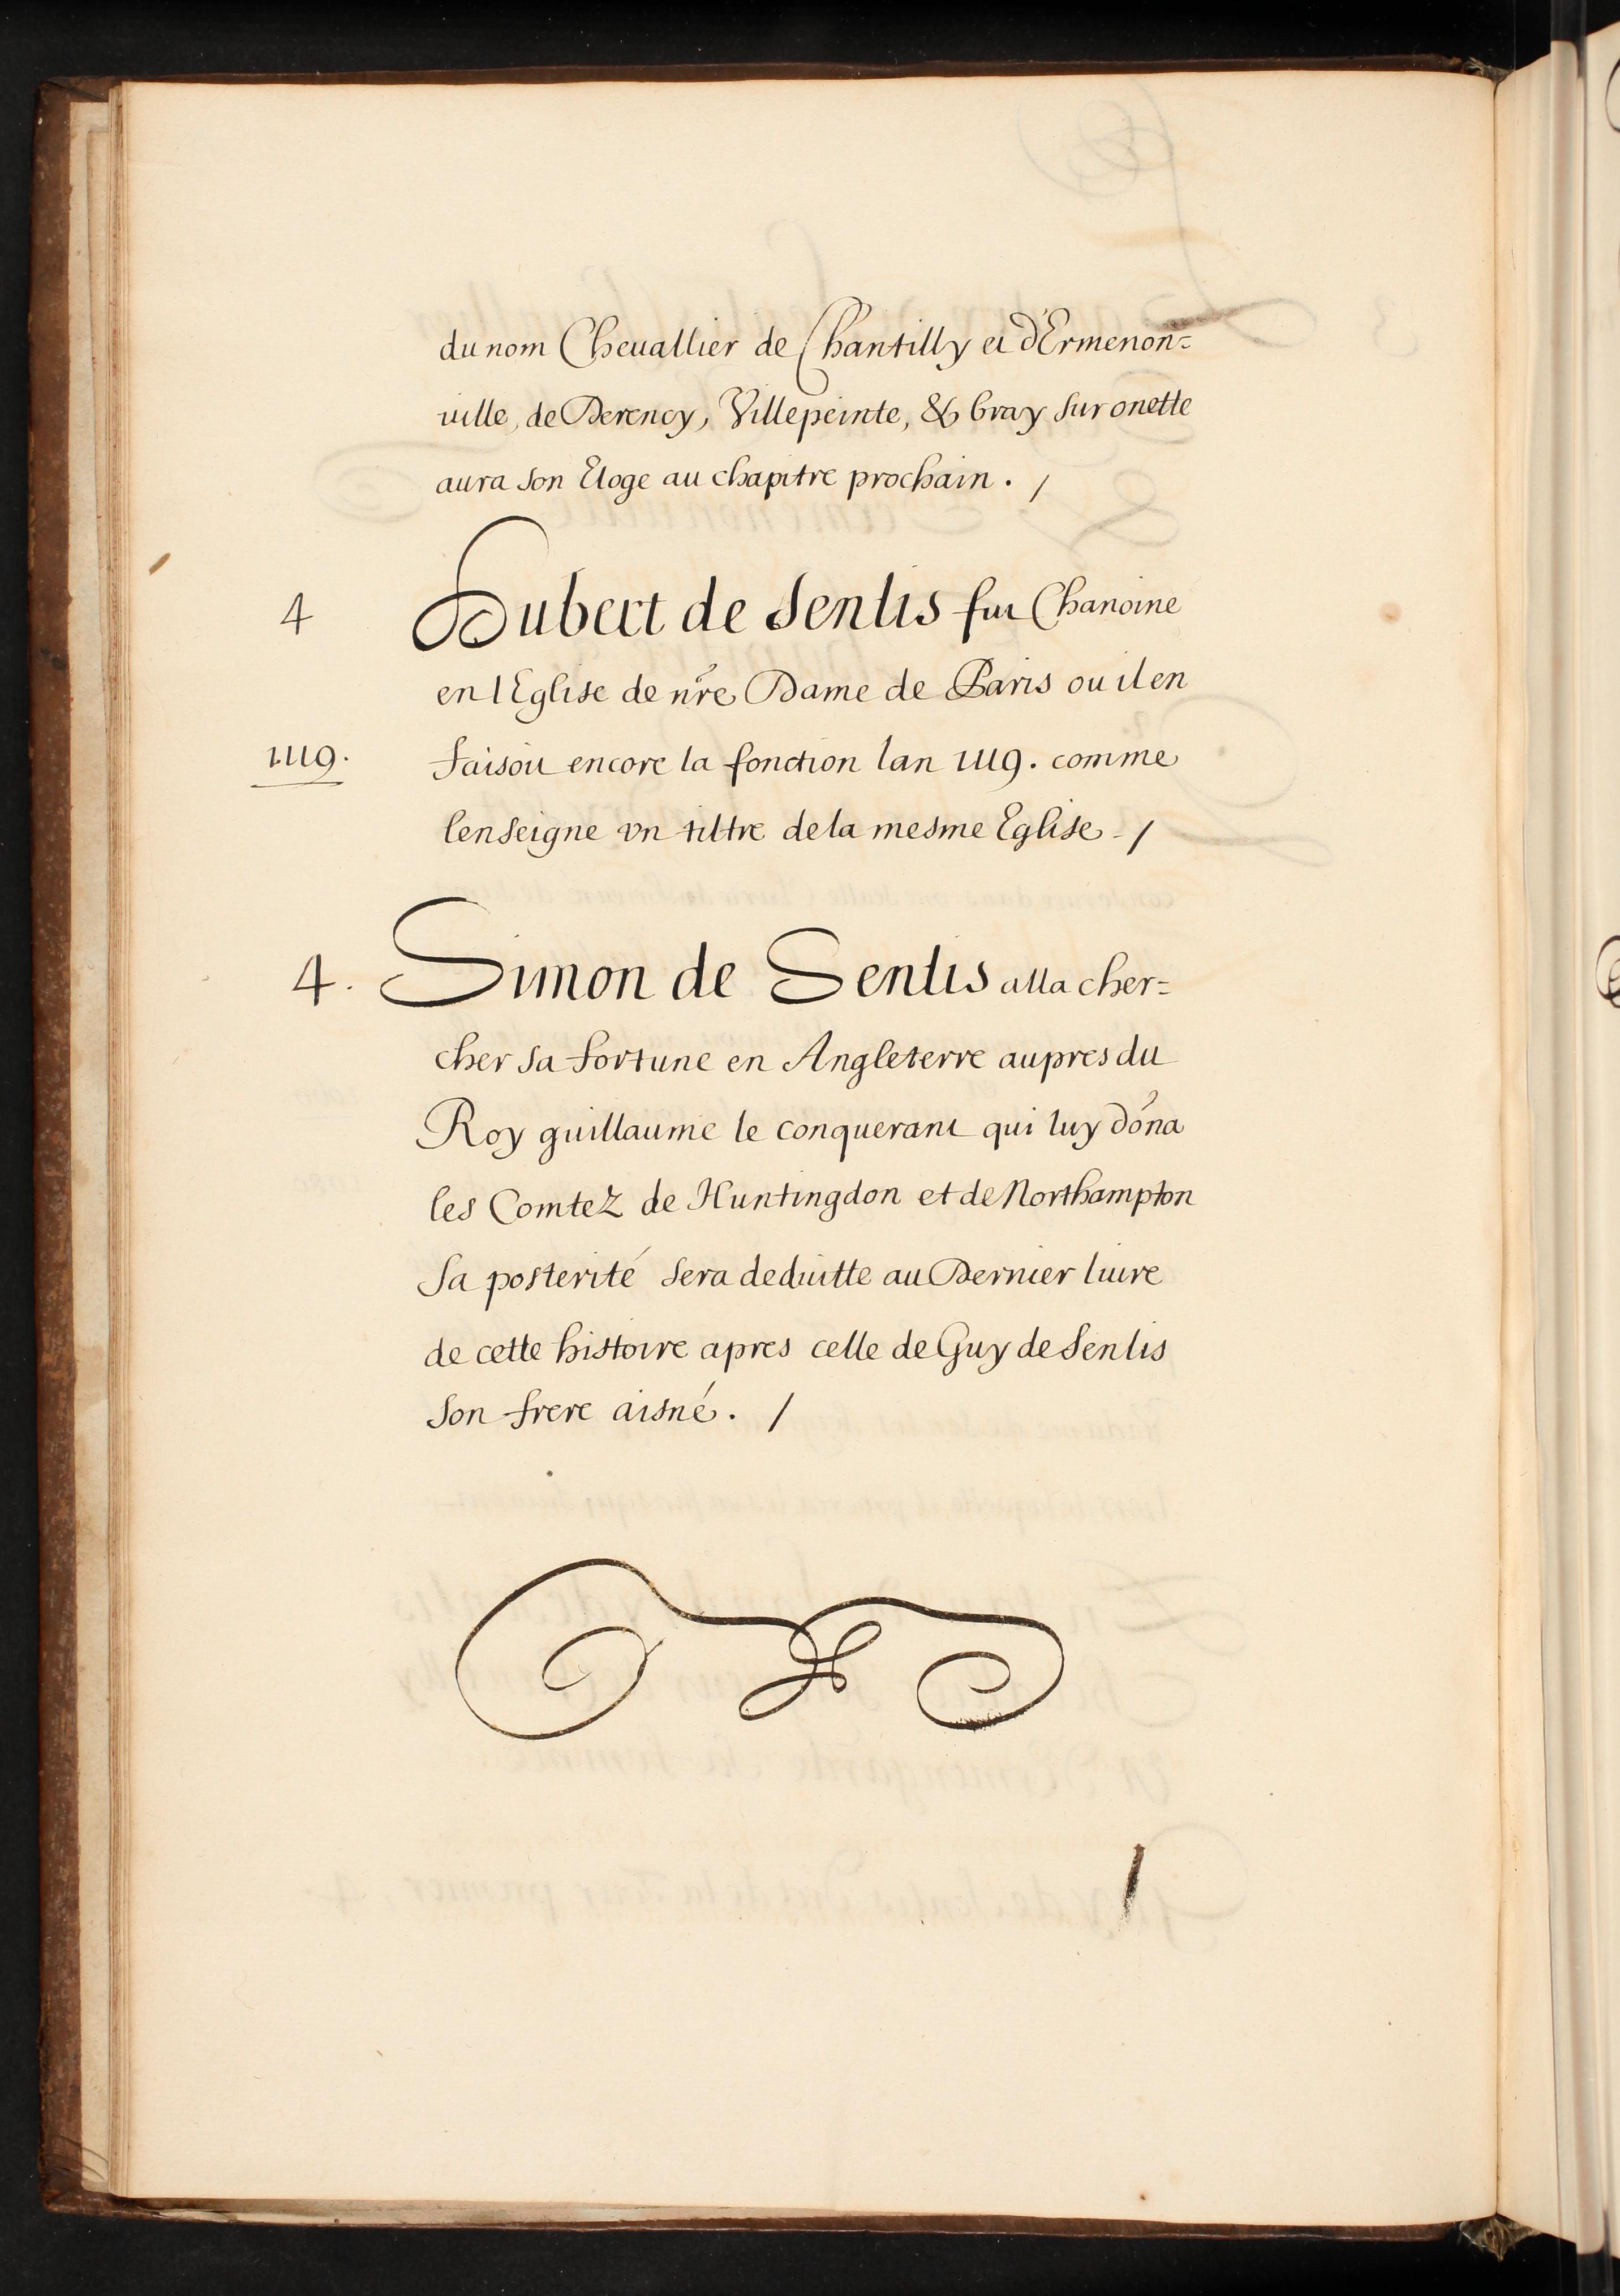 du nom Cheuallier de Chantilly et d'Ermenon=
uille, de Berency, Villepeinte, & bray sur onette
aura son Eloge au chapitre prochain. /
4 Hubert de Senlis fut Chanoine
en lEglise de nr̃e Dame de Paris ou il en
1119. faisoit encore la fonction lan 1119. comme
lenseigne vn tiltre de la mesme Eglise - /
4. Simon de Senlis alla cher=
cher sa fortune en Angleterre aupres du
Roy guillaume le conquerant qui luy dõna
les Comtez de Huntingdon et de Northampton
Sa posterité sera deduitte au Dernier liure
de cette histoire apres celle de Guy de Senlis
son frere aisné. /